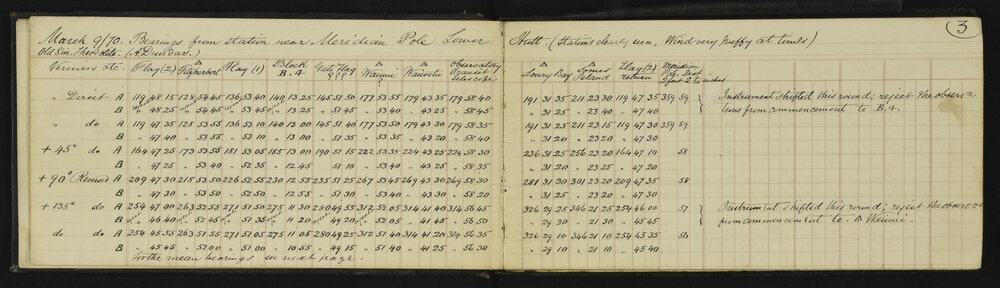 3
March 9/70. Bearings from station near Meridian Pole Lower Hutt - (Stations clearly seen, Wind very puffy at times)
Old 8 in. Theodolite. (A. Dundas.)
Verniers &c. Flag (2) Fitzherbert Flag (1) Block B. 4 Gate Flag ??? Δ Wainui ? Δ Waiwetu Observatory Transit Lowry Bay Somes Island Flag (2) return Meridian Pole Dist
" Direct A 119 48 15 128 54 45 136 53 40 140 13 25 145 51 50 177 53 55 179 43 35 179 58 40 191 31 35 211 23 30 119 47 35 359 59 Instrument shifted this round; reject the observa
B " 48 25 " 54 45 " 53 40 " 13 25 " 51 50 " 53 40 " 43 25 " 58 45 " 31 25 " 23 40 " 47 40 tions from commencement to B. 4.
" do A 119 47 35 128 53 55 136 53 10 140 13 00 145 51 40 177 53 50 179 43 30 179 58 35 191 31 25 211 23 15 119 47 30 359 59
B " 47 40 " 53 55 " 53 10 " 13 00 " 51 35 " 53 35 " 43 20 " 58 40 " 31 20 " 23 20 " 47 30
+ 45° do A 164 47 25 173 53 55 181 53 05 185 13 00 190 51 15 222 53 35 224 43 25 224 58 30 236 31 25 256 23 20 164 47 10 58
B " 47 25 " 53 40 " 52 35 " 12 45 " 51 10 " 53 40 " 43 25 " 58 35 " 31 20 " 23 25 " 47 20
+ 90° Reversed A 209 47 30 218 53 50 226 52 55 230 12 55 235 51 25 267 53 45 269 43 30 269 58 30 281 31 30 301 23 20 209 47 35 58
B " 47 30 " 53 50 " 52 50 " 12 55 " 51 30 " 53 40 " 43 30 " 58 20 " 31 25 " 23 20 " 47 30
+ 135° do A 254 47 00 263 52 55 271 51 50 275 11 30 280 49 55 312 52 05 314 41 40 314 56 45 326 29 25 346 21 25 254 46 00 57 Instrument shifted this round; reject the observns
B " 46 40 " 52 45 " 51 35 " 11 20 " 49 20 " 52 05 " 41 45 " 56 50 " 29 25 " 21 30 " 45 45 from commencement to Δ Wainui.
do do A 254 45 55 263 51 55 271 51 05 275 11 05 280 49 25 312 51 40 314 41 20 314 56 35 326 29 10 346 21 10 254 45 35 56
B " 45 45 " 52 00 " 51 00 " 10 55 " 49 15 " 51 40 " 41 25 " 56 30 " 29 10 " 21 10 " 45 40
For the mean bearings see next page.